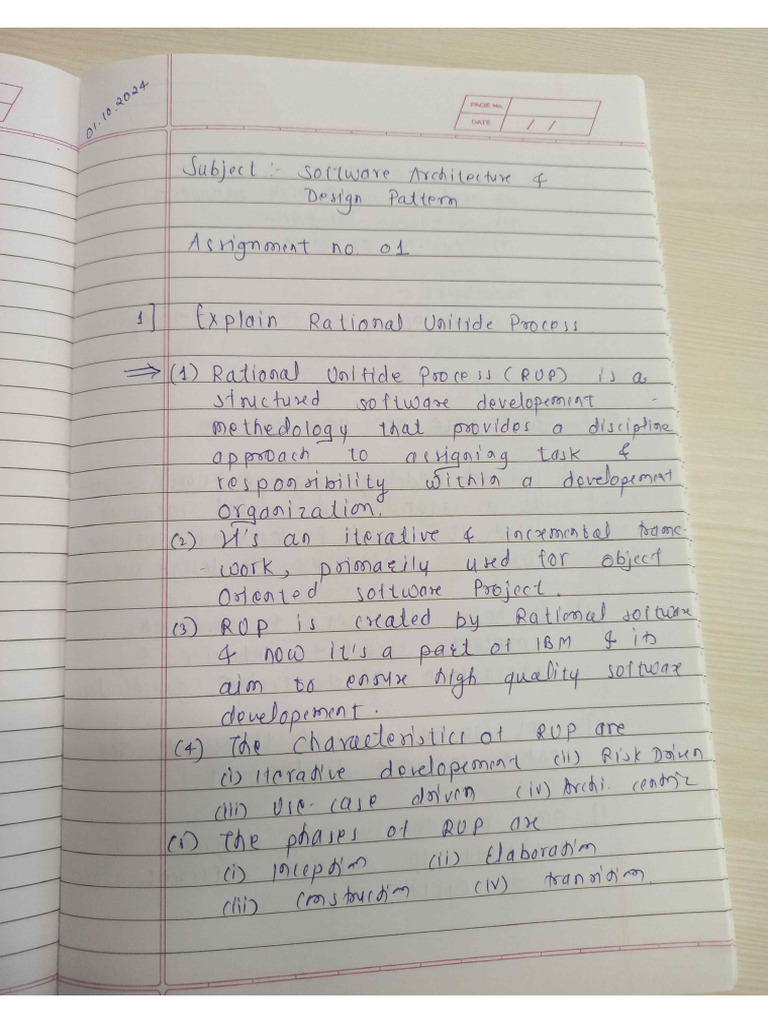 01.10.2024
PAGE No.
DATE / /
Subject :- Software Architecture &
Design Pattern
Assignment no. 01
1] Explain Rational Unifide Process
⇒ (1) Rational Unifide Process (RUP) is a
structured software developement
methedology that provides a discipline
approach to assigning task &
responsibility within a developement
organization.
(2) It's an iterative & incremental frame-
work, primarily used for object
Oriented software Project.
(3) RUP is created by Rational software
& now it's a part of IBM & its
aim to ensure high quality software
developement.
(4) The characteristics of RUP are
(i) Iterative developement (ii) Risk Driven
(iii) Use-case driven (iv) Archi. centric
(5) The phases of RUP are
(i) Inception (ii) Elaboration
(iii) Construction (iv) transition.